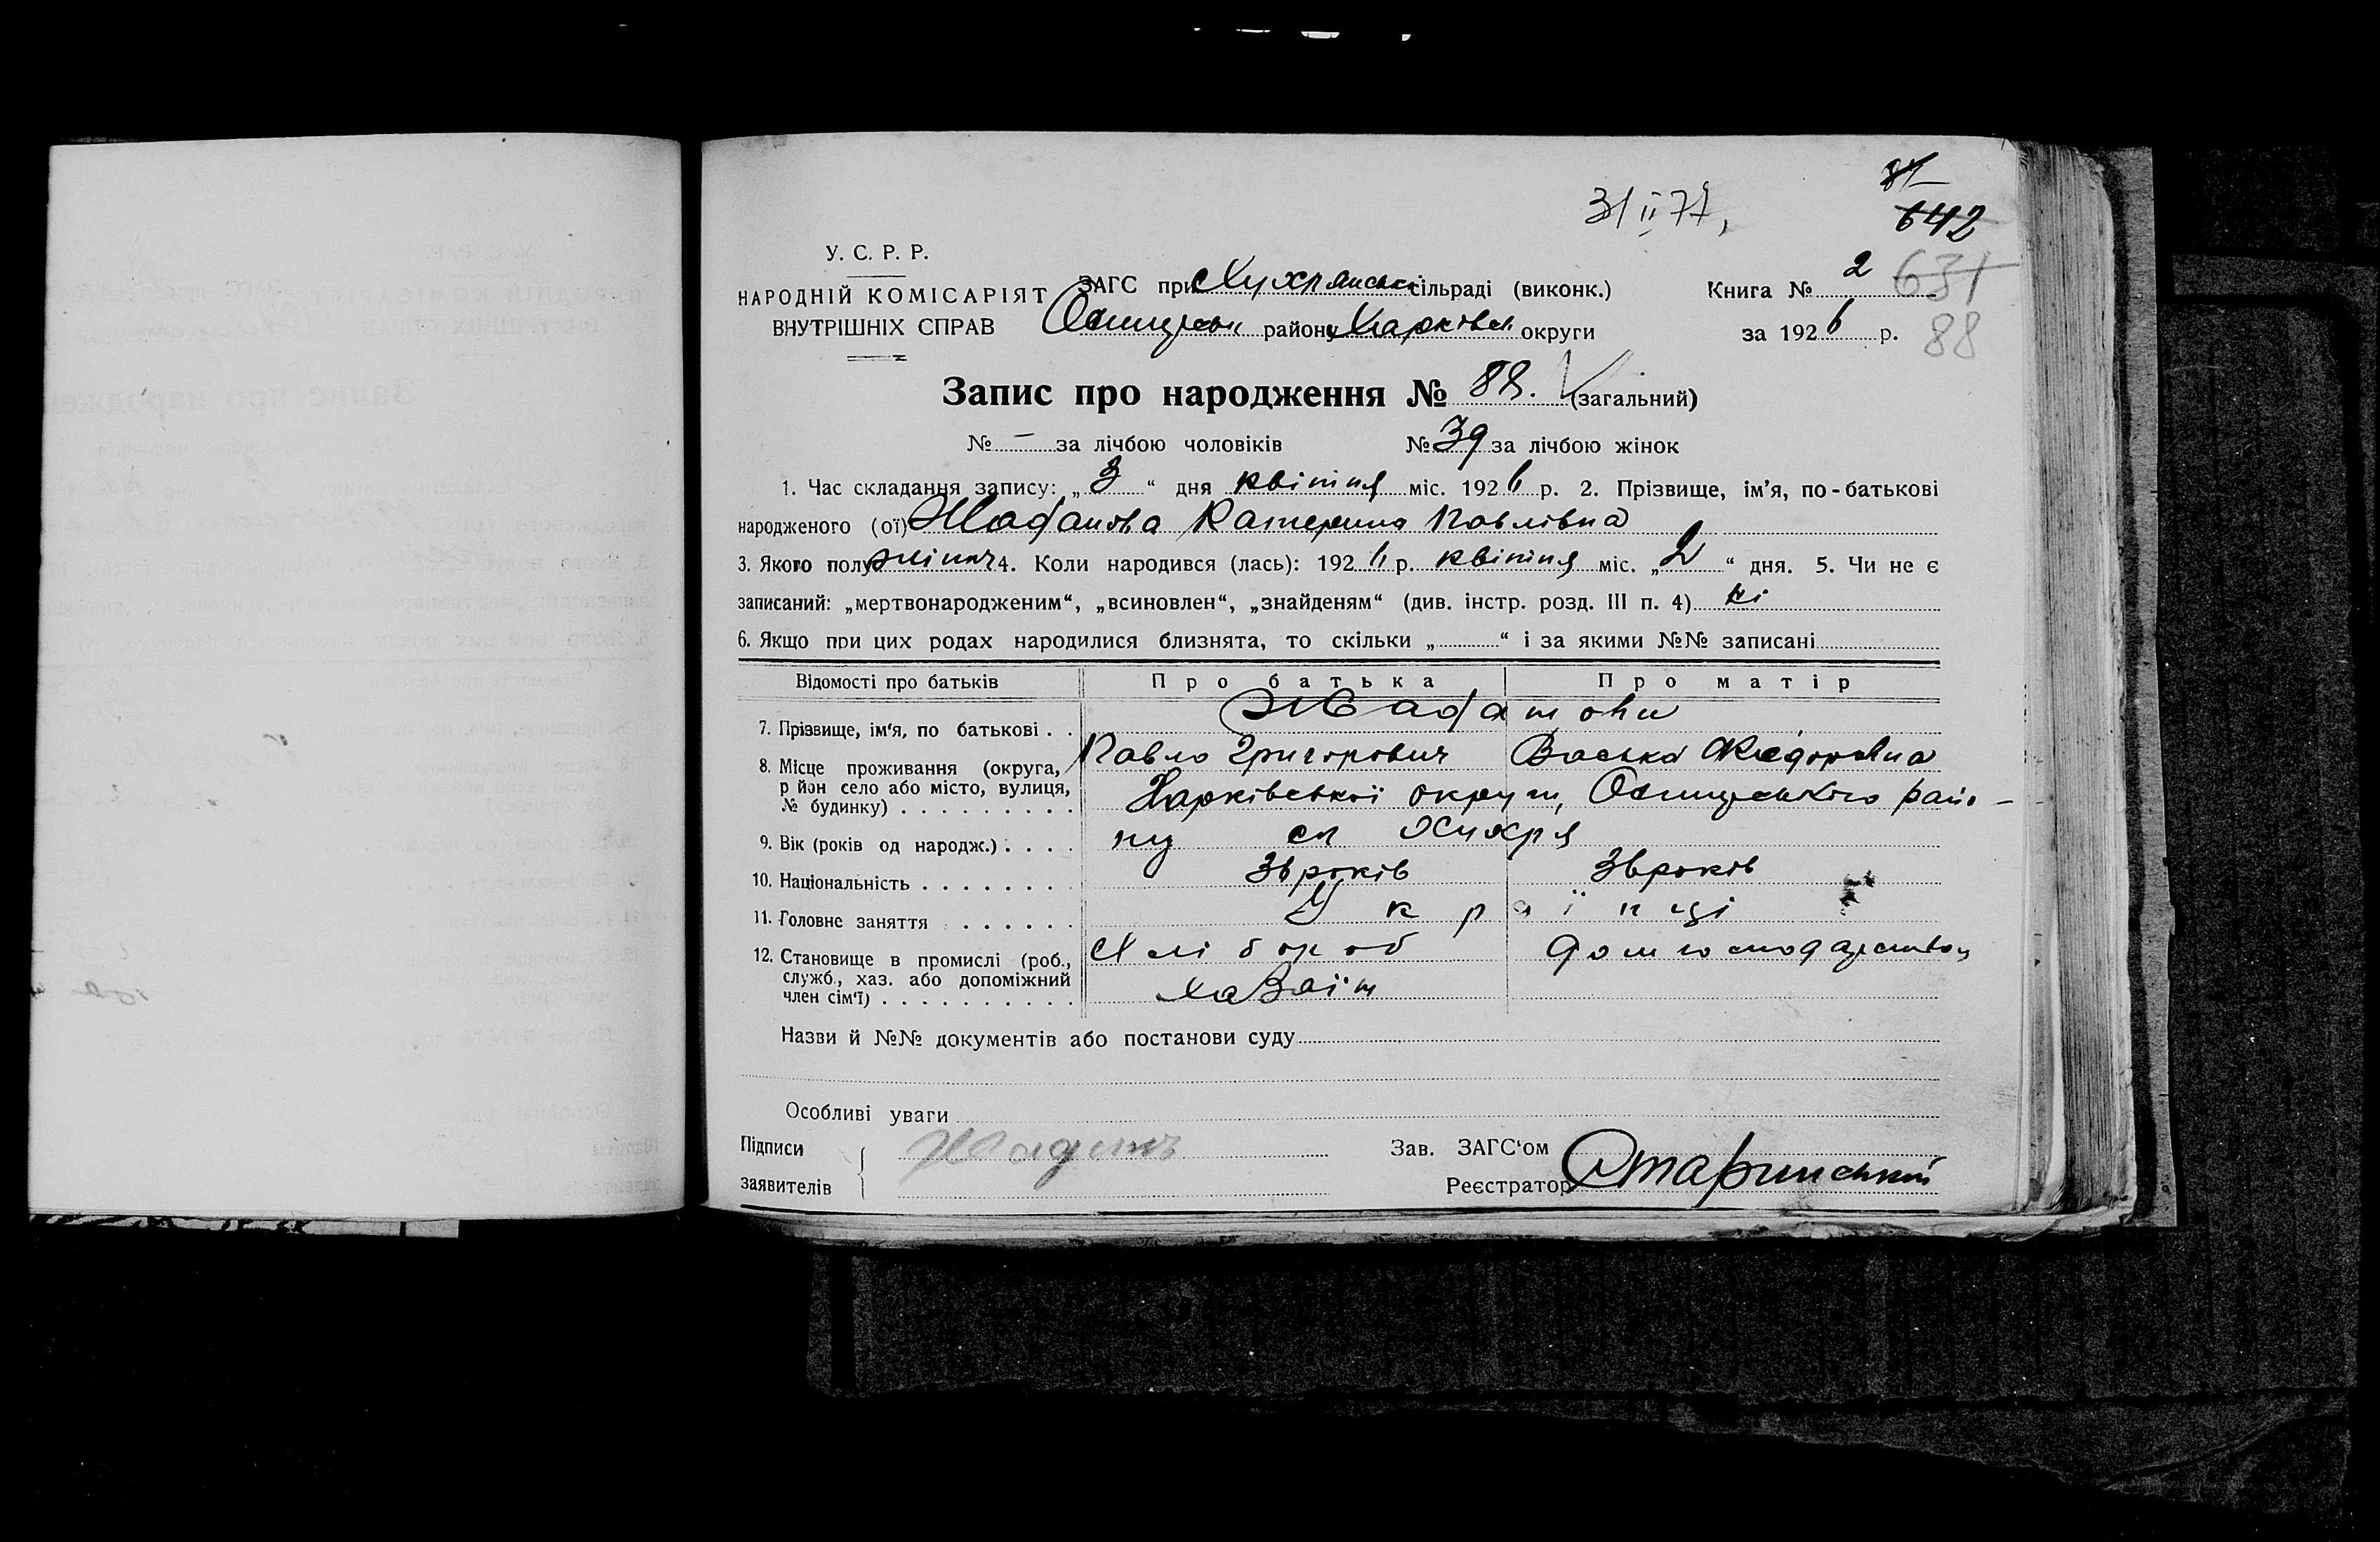 31 II 77,
642
У. С. Р. Р.
631
НАРОДНІЙ КОМІСАРІЯТ
ВНУТРІШНІХ СПРАВ
ЗАГС при Хухрянськ сільраді (виконк.)
району Харківськ округи
Книга № 2
за 1926 р. 88
Запис про народження № 88. (загальний)
№ – за лічбою чоловіків № 39 за лічбою жінок
1. Час складання запису: „3“ дня квітня міс. 1926 р. 2. Прізвище, ім’я, по-батькові
народженого (ої) Катерина Павлівна
3. Якого полу жіноч 4. Коли народився (лась): 1926 р. квітня міс. „2“ дня. 5. Чи не є
записаний: „мертвонародженим“, „всиновлен“, „знайденям“ (див. інстр. розд. III п. 4) ні
6. Якщо при цих родах народилися близнята, то скільки „ “ і за якими №№ записані
Відомості про батьків Про батька Про матір
7. Прізвище, ім‘я, по батькові . .
Павло Григорович
8. Місце проживання (округа,
р йон село або місто, вулиця,
№ будинку) . . . . . . . . .
Харківської округи, Охтирського райо-
ну сл Хухря
9. Вік (років од народж.) . . . .
36 років 36 років
10. Національність . . . . . . .
Українці
11. Головне заняття . . . . . .
Хлібороб домгосподарством
12. Становище в промислі (роб.,
служб., хаз. або допоміжний
член сім‘ї) . . . . . . . . . .
хазаїн
Назви й №№ документів або постанови суду
Особливі уваги
Підписи
заявителів
Зав. ЗАГС‘ом
Реєстратор